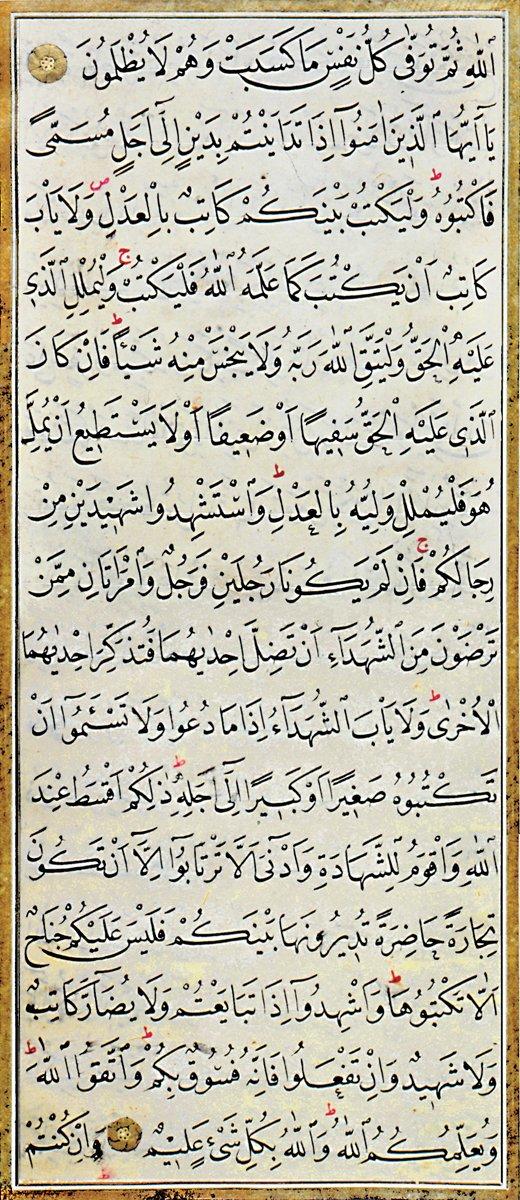 اللّٰهِ ثُمَّ تُوَفّٰى كُلُّ نَفْسٍ مَا كَسَبَتْ وَهُمْ لَا يُظْلَمُونَ
يَٓا اَيُّهَا الَّذ۪ينَ اٰمَنُٓوا اِذَا تَدَايَنْتُمْ بِدَيْنٍ اِلٰٓى اَجَلٍ مُسَمًّى
فَاكْتُبُوهُۜ وَلْيَكْتُبْ بَيْنَكُمْ كَاتِبٌ بِالْعَدْلِۖ وَلَا يَاْبَ
كَاتِبٌ اَنْ يَكْتُبَ كَمَا عَلَّمَهُ اللّٰهُ فَلْيَكْتُبْۚ وَلْيُمْلِلِ الَّذ۪ي
عَلَيْهِ الْحَقُّ وَلْيَتَّقِ اللّٰهَ رَبَّهُ وَلَا يَبْخَسْ مِنْهُ شَيْـًٔاۜ فَاِنْ كَانَ
الَّذ۪ي عَلَيْهِ الْحَقُّ سَف۪يهًا اَوْ ضَع۪يفًا اَوْ لَا يَسْتَط۪يعُ اَنْ يُمِلَّ
هُوَ فَلْيُمْلِلْ وَلِيُّهُ بِالْعَدْلِۜ وَاسْتَشْهِدُوا شَه۪يدَيْنِ مِنْ
رِجَالِكُمْۚ فَاِنْ لَمْ يَكُونَا رَجُلَيْنِ فَرَجُلٌ وَامْرَاَتَانِ مِمَّنْ
تَرْضَوْنَ مِنَ الشُّهَدَٓاءِ اَنْ تَضِلَّ اِحْدٰيهُمَا فَتُذَكِّرَ اِحْدٰيهُمَا
الْاُخْرٰىۜ وَلَا يَاْبَ الشُّهَدَٓاءُ اِذَا مَا دُعُوا وَلَا تَسْـَٔمُٓوا اَنْ
تَكْتُبُوهُ صَغ۪يرًا اَوْ كَب۪يرًا اِلٰٓى اَجَلِه۪ۜ ذٰلِكُمْ اَقْسَطُ عِنْدَ
اللّٰهِ وَاَقْوَمُ لِلشَّهَادَةِ وَاَدْنٰٓى اَلَّا تَرْتَابُٓوا اِلَّٓا اَنْ تَكُونَ
تِجَارَةً حَاضِرَةً تُد۪يرُونَهَا بَيْنَكُمْ فَلَيْسَ عَلَيْكُمْ جُنَاحٌ
اَلَّا تَكْتُبُوهَاۜ وَاَشْهِدُٓوا اِذَا تَبَايَعْتُمْ وَلَا يُضَٓارَّ كَاتِبٌ
وَلَا شَه۪يدٌ وَاِنْ تَفْعَلُوا فَاِنَّهُ فُسُوقٌ بِكُمْۜ وَاتَّقُوا اللّٰهَۜ
وَيُعَلِّمُكُمُ اللّٰهُۜ وَاللّٰهُ بِكُلِّ شَيْءٍ عَل۪يمٌ وَاِنْ كُنْتُمْ